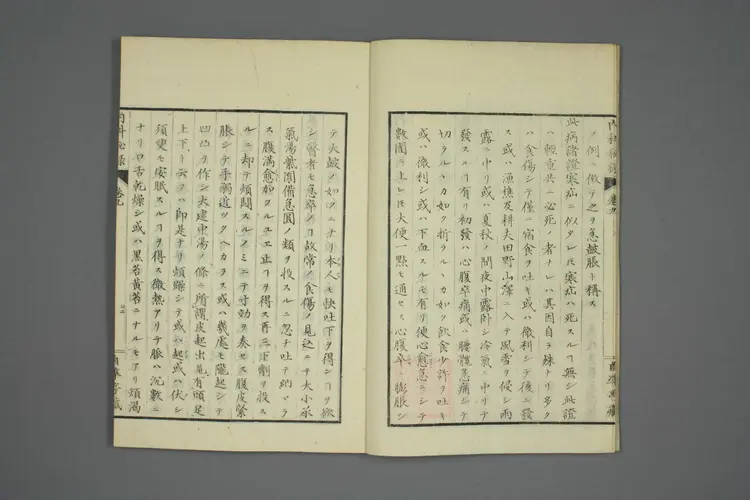 ノ例ニ倣テ之ヲ急皷脹ト稱ス
此病諸證寒疝ニ似タレ𪜈寒疝ハ死スルヿ無シ此證
ハ輕重共ニ必死ノ者ナレハ其因自ラ殊ナリ多ク
ハ食傷シテ僅ニ宿食ヲ吐キ或ハ微利シテ後ニ發
ス或ハ漁樵及耕夫田野山澤ニ入テ風雪ヲ侵シ雨
露ニ中リ或ハ夏秋ノ間夜中露卧シ冷氣ニ中リテ
發スルヿ有リ初發ハ心腹卒痛或ハ腰髖急痛シテ
切ルヽカ如ク折ラルヽカ如ク飲食少許ヲ吐キ
或ハ微利シ或ハ下血スルモ有リ便心愈急ニシテ
數圊ニ上レ𪜈大便一點モ通セス心腹卒ニ膨脹シ
テ大皷ノ如クニナリ本人モ快吐下ヲ得シヿヲ欲
シ醫者モ急卒ノヿ故常ノ食傷ノ見込ニテ大小承
氣湯紫圓備急圓ノ類ヲ投スルニ忽チ吐テ納マラ
ス腹滿愈加ハルユエ止ヿヲ得ス再三下劑ヲ投ス
ルニ却テ煩悶スルノミニテ寸功ヲ奏セス腹皮緊
脹シテ手嚮近ツクヘカラス或ハ幾處モ隴起シテ
凹凸ヲ作シ大建中湯ノ條ニ所謂皮起出見有頭足
上下ト云ヲハ即是ナリ煩躁シテ或ハ起或ハ伏シ
須叟モ安眠スルヿヲ得ス微熱アリテ脈ハ沉數ニ
ナリ口舌乾燥シ或ハ黑苔黄苔ニナルモアリ煩渇
内科秘録
卷九